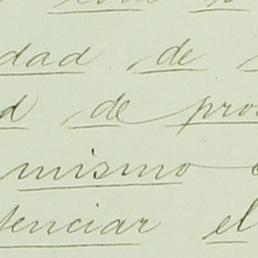 dad de
d de pro
mismo
tenciar el